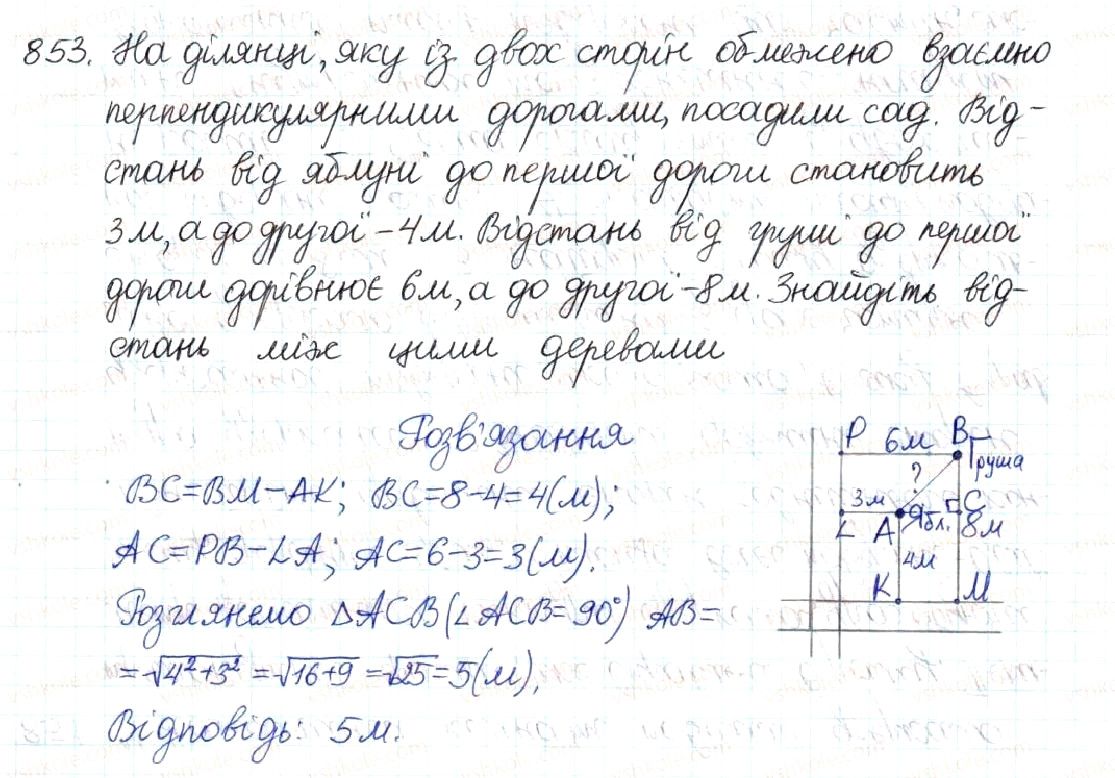 853. На ділянці, яку із двох сторін обмежено взаємно
перпендикулярними дорогами, посадили сад. Від-
стань від яблуні до першої дороги становить
3 м, а до другої – 4 м. Відстань від груші до першої
дороги дорівнює 6 м, а до другої – 8 м. Знайдіть від-
стань між цими деревами
Розв'язання
BC = BM – AK; BC = 8 – 4 = 4 (м);
AC = PB – LA; AC = 6 – 3 = 3 (м).
Розглянемо ΔACB (∠ACB = 90°) AB =
= √4² + 3² = √16 + 9 = √25 = 5 (м).
Відповідь: 5 м.
P 6м B Груша
?
3м C
L A Ябл. 8м
4м
K M